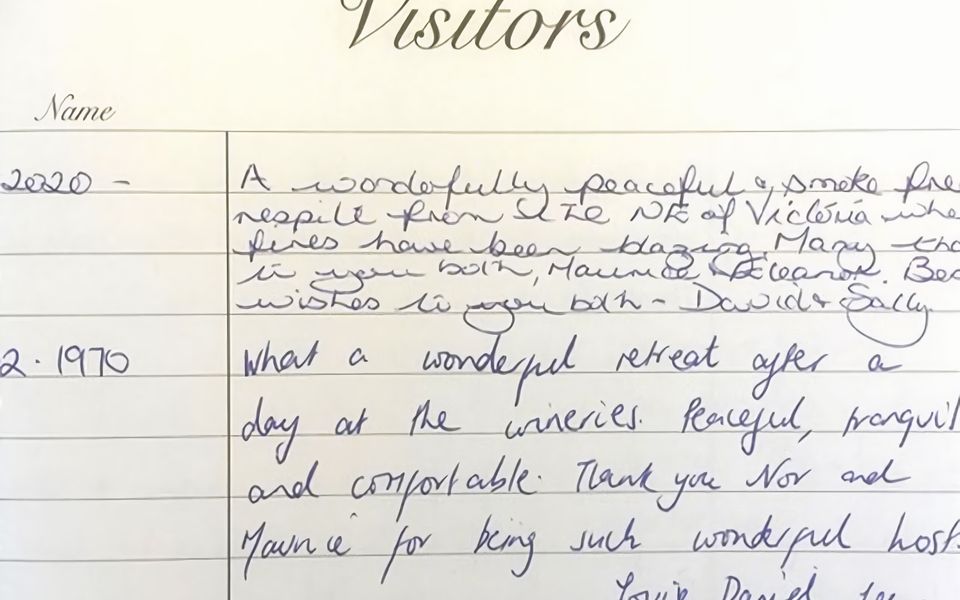 Visitors
Name
2020 - A wonderfully peaceful & smoke fre
respite from the NE of Victoria whe
fires have been blazing. Many tha
to you both, Maurice & Eleanor. Bes
wishes to you both - David & Sally
2. 1970 What a wonderful retreat after a
day at the wineries. Peaceful, tranquil
and comfortable. Thank you Nor and
Maurice for being such wonderful host
Daniel